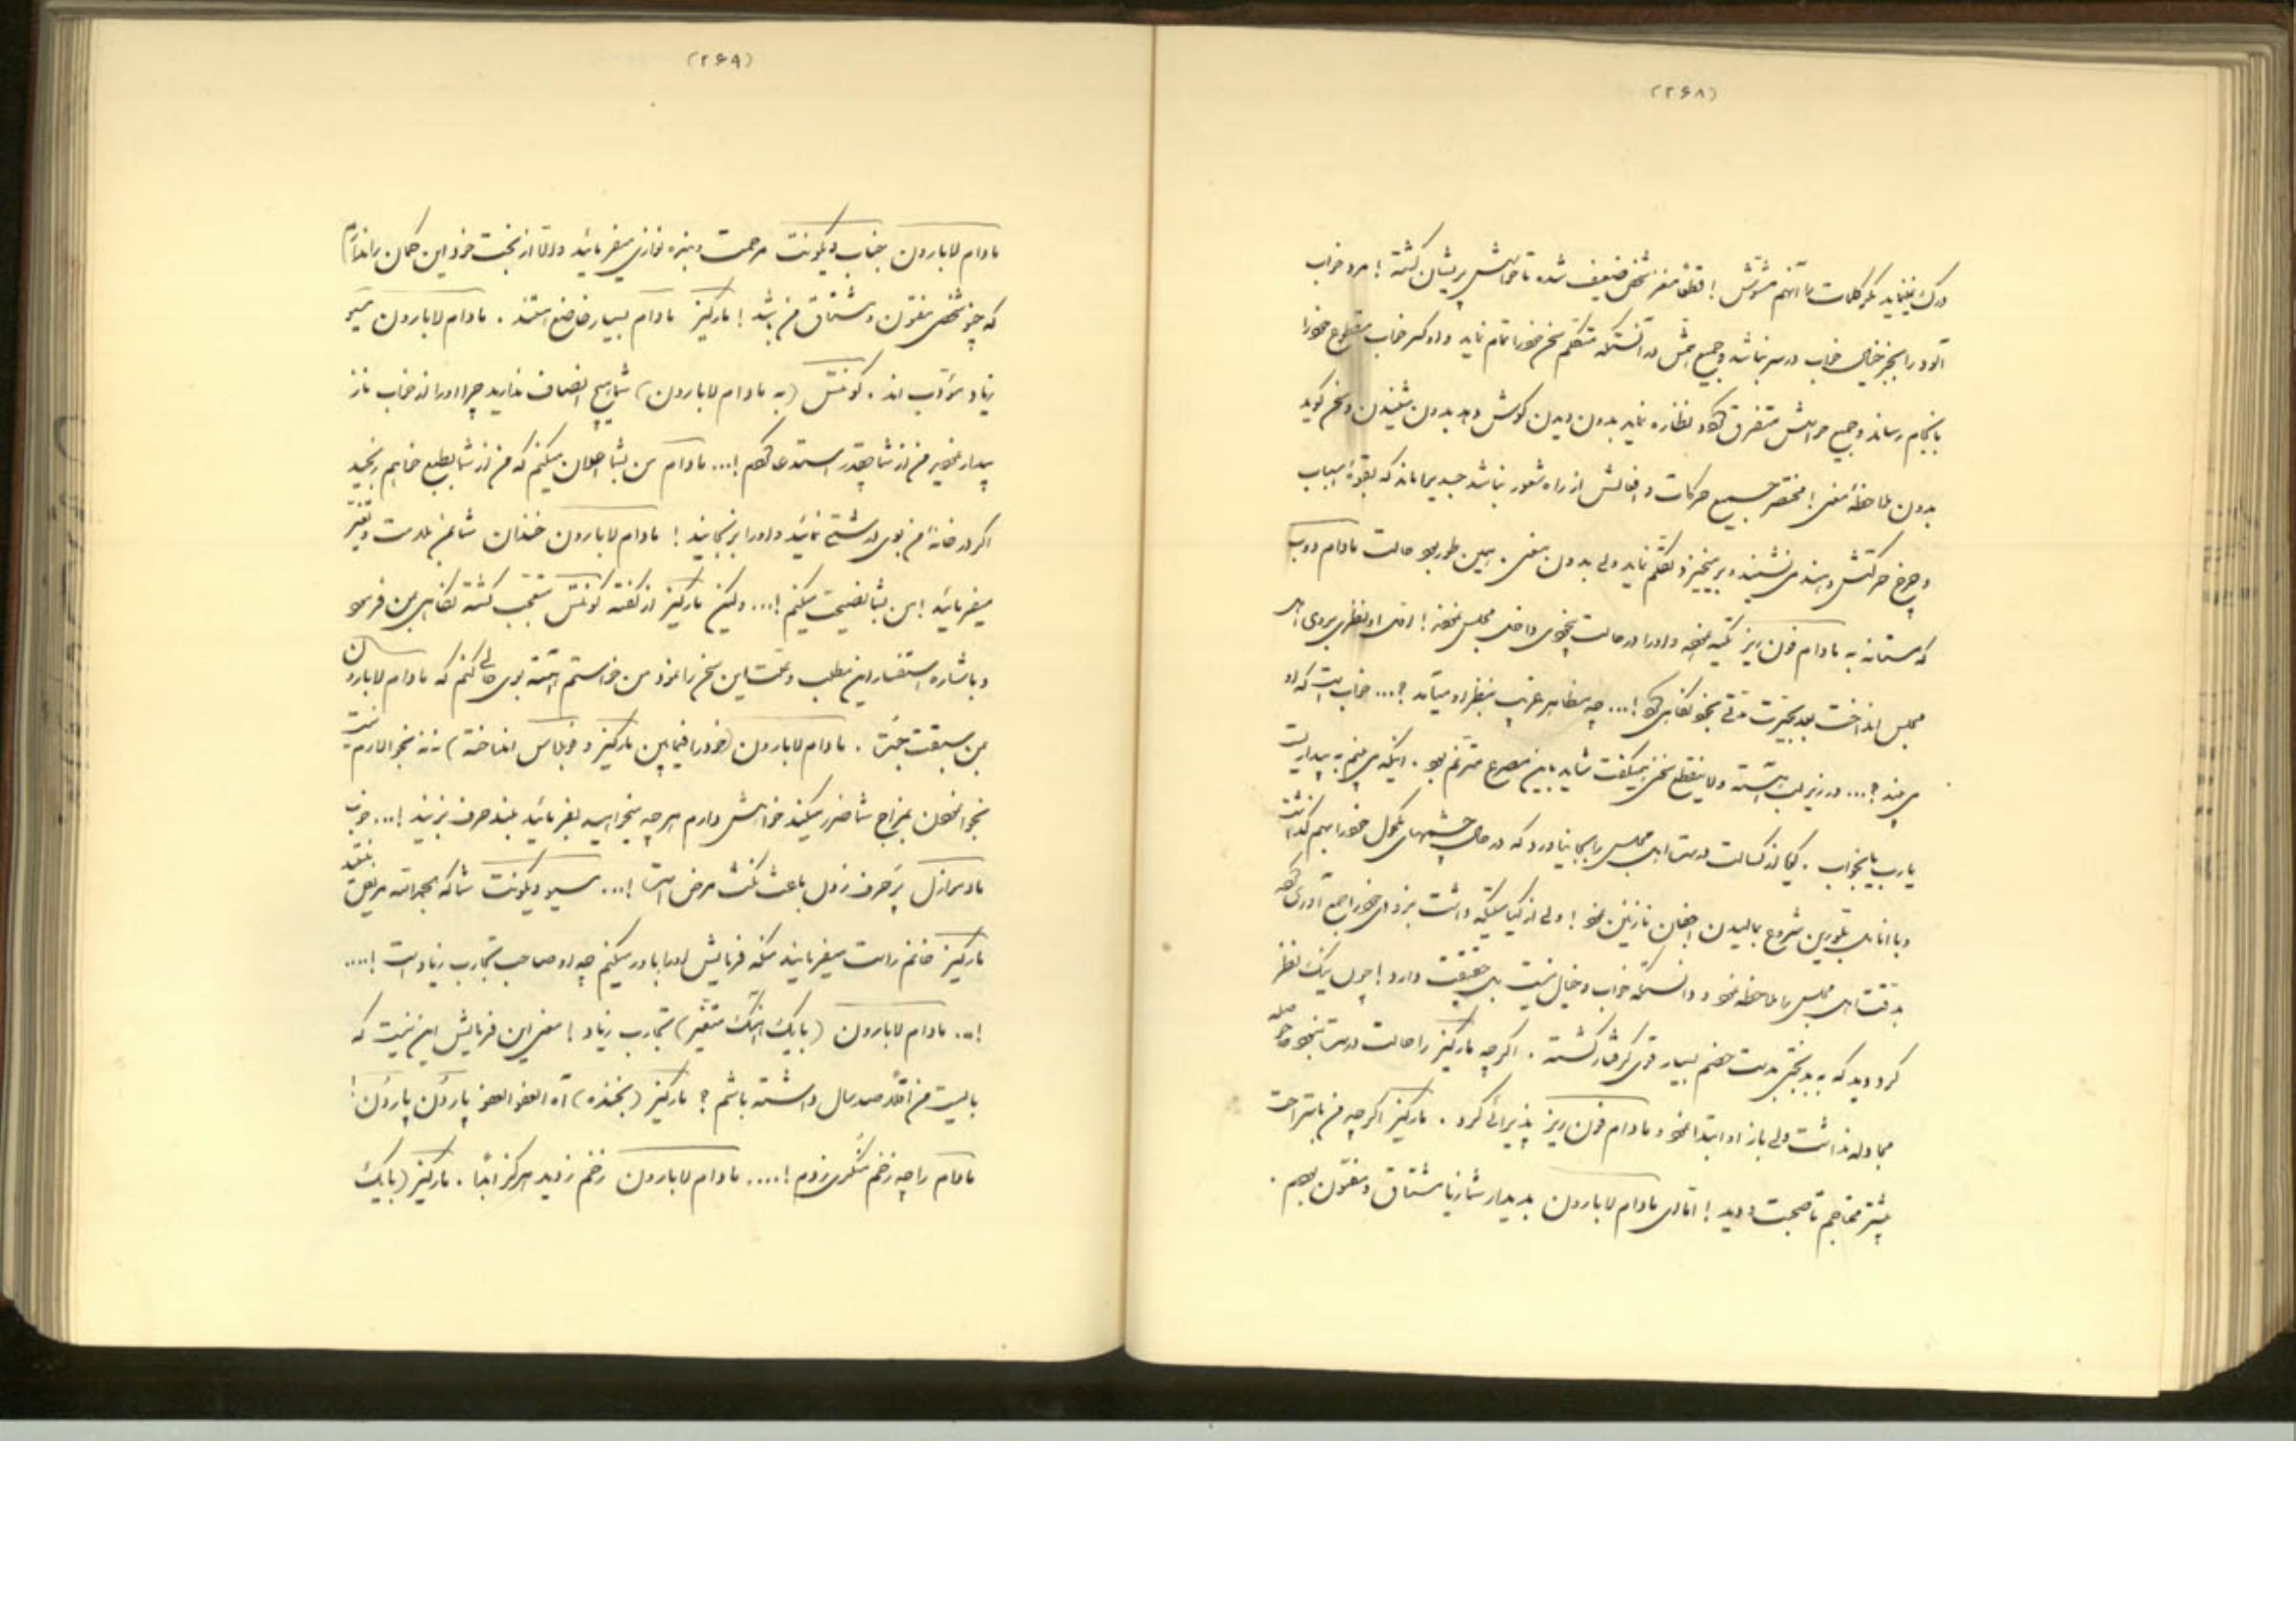 (۲۶۸)
درک نمینماید مگر کلمات را آنهم مشوش! قطعا مغز شخص ضعیف شده تا حواسش پریشان گشته! مرد خواب
آلود را بجز خیال خواب در سر نباشد و جمیع متکلم سخن خود را تمام نماید و او کسر خواب مقطوع خود را
بانجام رساند و جمیع حواسش متفرق نظاره نماید بدون دیدن گوش دهد بدون شنیدن و سخن گوید
بدون ملاحظه معنی! مختصر جمیع حرکات و افعالش از راه شعور نباشد جسد بیجانی ماند که بقوه اسباب
و چرخ حرکتش دهند می نشیند و برمیخیزد و تکلم نماید ولی بدون معنی. همین طور بود حالت مادام دوب
که مستانه به مادام فون ریز تکیه نموده و او را در حالت بیخودی داخل مجلس نمود! اول او نظری بروی اهل
مجلس انداخت بعد بحیرت مدتی بخود نگاه کرد!... چه مظاهر غریب بنظر او میآمد؟... خواب است که او
می بیند؟... در زیر لب آهسته و لا ینقطع سخن میگفت شاید باین مصرع مترنم بود. اینکه می بینم به بیداریست
یارب یا بخواب. گویا از کسالت درست اهل مجلس را بجا نیاورد که در حال چشمهای مکحول خود را بهم گذاشت
و با انامل بلورین شروع بمالیدن اجفان نازنین نمود! ولی از کیاستیکه داشت بزودی خود را جمع آوری کرده
بدقت اهل مجلس را ملاحظه نمود و دانست که خواب و خیال نیست بل حقیقت دارد! چون یک نظر
کرد دید که به بدبختی بدست خصم بسیار قوی گرفتار گشته. اگرچه مارکیز را حالت درست نبود حوصله
مجادله نداشت ولی باز او ابتدا نمود و مادام فون ریز پذیرائی کرد. مارکیز اگرچه من باستراحت
بیشتر محتاجم تا صحبت و دید! اما ای مادام لابارون بدیدار شما زیاد مشتاق و مفتون بودم.
(۲۶۹)
مادام لابارون جناب ویکونت مرحمت و بنده نوازی میفرمائید والا از بخت خود این گمان را ندارم
که چنو شخصی مفتون و مشتاق من باشد! مارکیز مادام بسیار خاضع هستند. مادام لابارون مسیو
زیاد مؤدب اند. کونتس (به مادام لابارون) شما هیچ انصاف ندارید چرا او را از خواب ناز
بیدار نمودید من از شما چقدر استدعا کردم!... مادام من بشما اعلان میکنم که من از شما بطبع خواهم رنجید
اگر در خانه من بوی درشتی نمائید و او را برنجانید! مادام لابارون خندان شما بمن ملامت و تغیر
میفرمائید! من بشما نصیحت میکنم!... ولیکن مارکیز از گفته کونتس متعجب گشته نگاهی بمن فرمود
و باشاره استفسار این مطلب و علت این سخن را نمود من خواستم آهسته بوی حالی کنم که مادام لابارون
بمن سبقت جست. مادام لابارون (خود را فیمابین مارکیز و دوبلاس انداخته) نه نه نجوا لازم نیست
نجوا نمودن بمزاج شما ضرر میکند خواهش دارم هر چه میخواهید بفرمائید بلند حرف بزنید!... خوب
مادموازل پرحرف زدن باعث نکث مرض است!... مسیو ویکونت شما که بحمدالله مریض نیستید
مارکیز خانم راست میفرمایند منکه فرمایش او را باور میکنم چه او صاحب تجارب زیاد است!....
!... مادام لابارون (با یک آهنگ متغیر) تجارب زیاد! معنی این فرمایش این نیست که
بایست من اقلاً صد سال داشته باشم؟ مارکیز (بخنده) آه العفو العفو پاردُن پاردُن!
مادام را چه زخم منکری زدم!.... مادام لابارون زخم زدید هرگز ابدًا. مارکیز (با یک